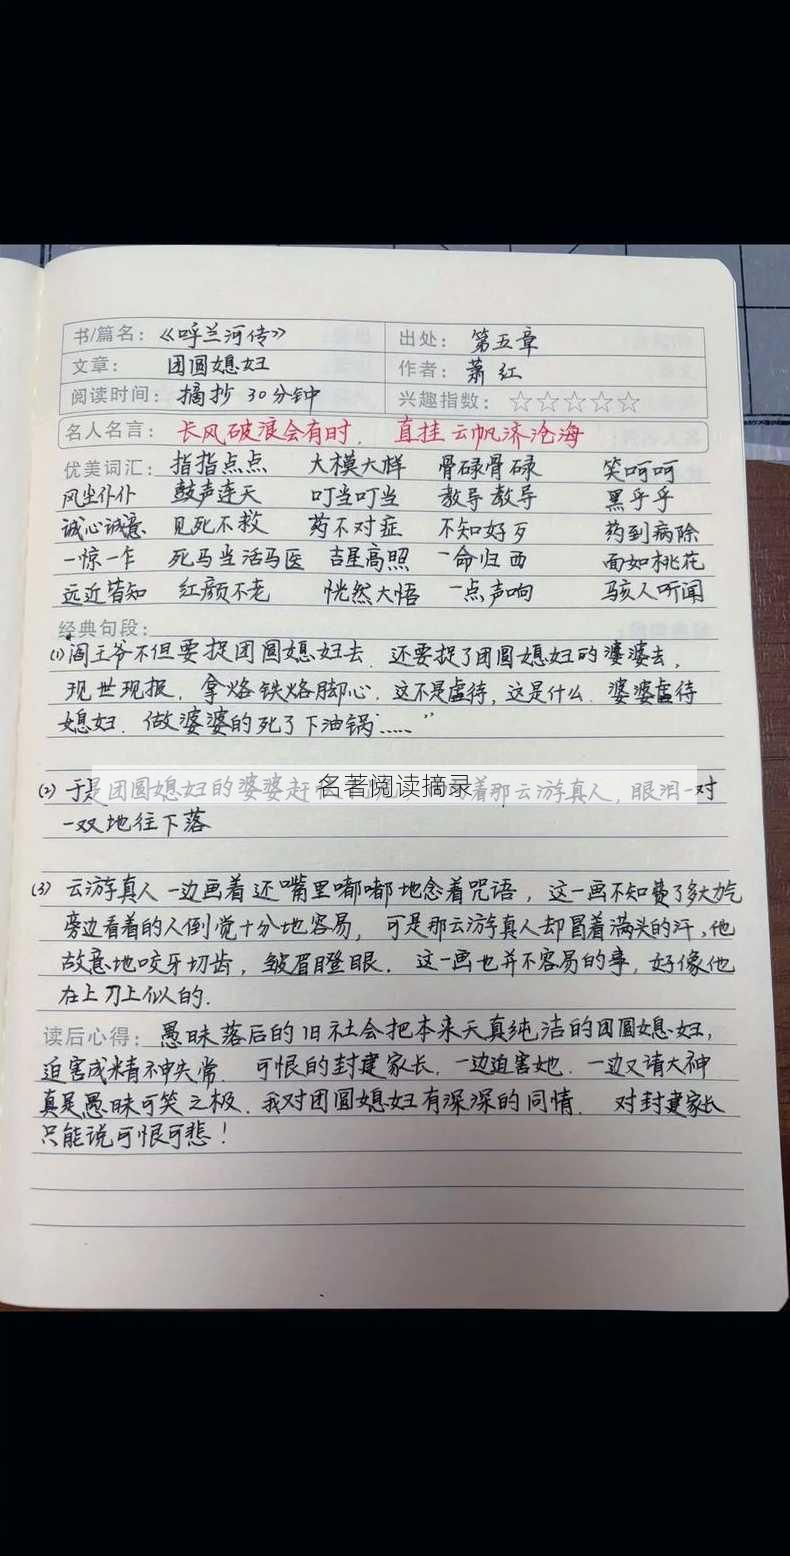 书/篇名：《呼兰河传》 出处：第五章
文章：团圆媳妇 作者：萧红
阅读时间：摘抄30分钟 兴趣指数：☆☆☆☆☆
名人名言：长风破浪会有时，直挂云帆济沧海
优美词汇：指指点点 大模大样 骨碌骨碌 笑呵呵
风尘仆仆 鼓声连天 叮当叮当 教导教导 黑乎乎
诚心诚意 见死不救 药不对症 不知好歹 药到病除
一惊一乍 死马当活马医 吉星高照 一命归西 面如桃花
远近皆知 红颜不老 恍然大悟 一点声响 骇人听闻
经典句段：
(1)阎王爷不但要捉团圆媳妇去，还要捉了团圆媳妇的婆婆去，
现世现报，拿烙铁烙脚心，这不是虐待，这是什么，婆婆虐待
媳妇，做婆婆的死了下油锅……”
(2)于是团圆媳妇的婆婆赶 着那云游真人，眼泪一对
名著阅读摘录
一双地往下落
(3)云游真人一边画着还嘴里嘟嘟地念着咒语，这一画不知费了多大力气
旁边看着的人倒觉十分地容易，可是那云游真人却冒着满头的汗，他
故意地咬牙切齿，皱眉瞪眼，这一画也并不容易的事，好像他
在上刀上似的．
读后心得：愚昧落后的旧社会把本来天真纯洁的团圆媳妇，
迫害成精神失常．可恨的封建家长，一边迫害她，一边又请大神
真是愚昧可笑之极．我对团圆媳妇有深深的同情．对封建家长
只能说可恨可悲！